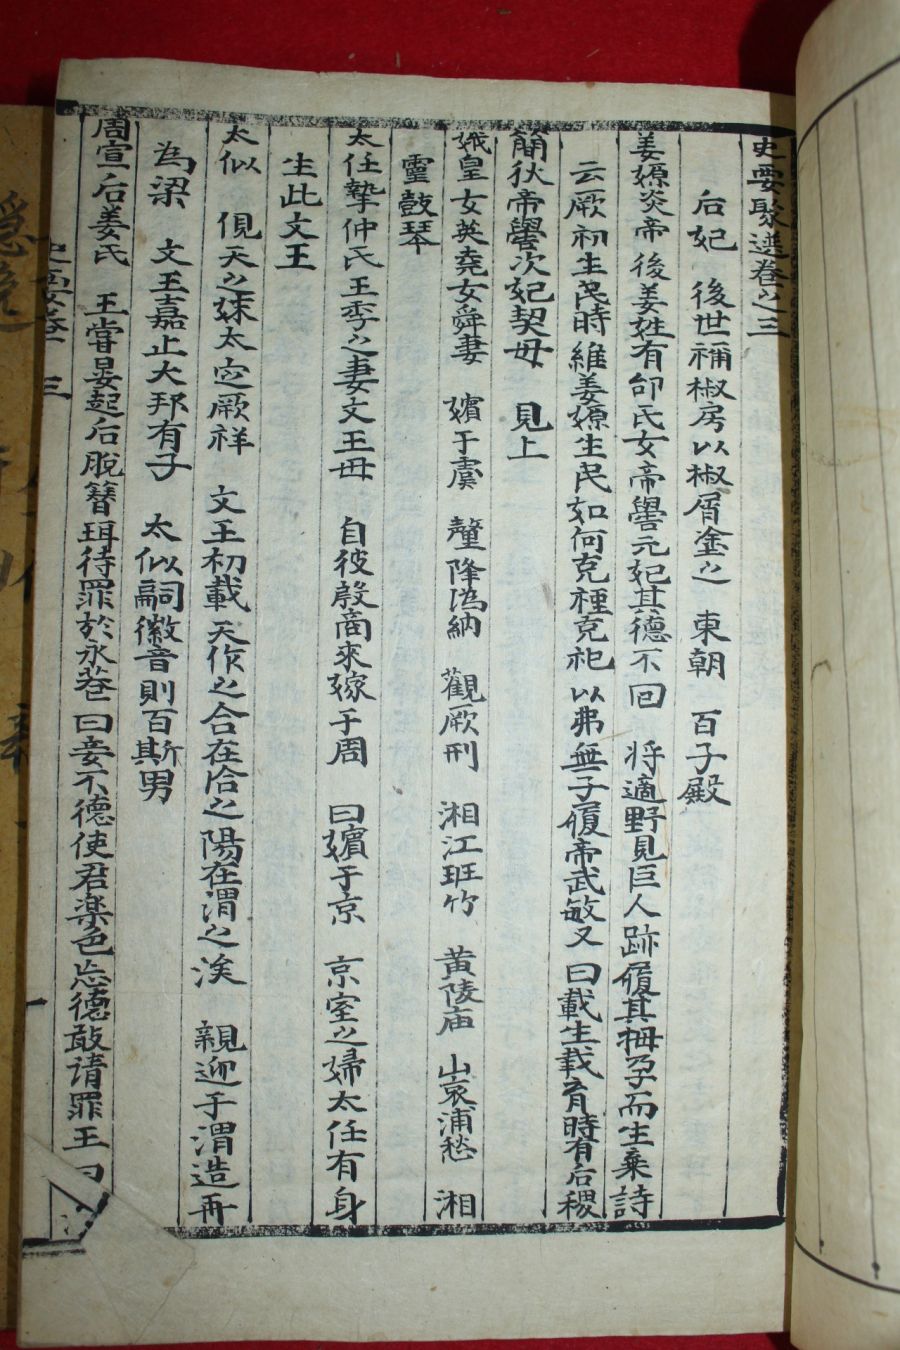 史要聚選卷之三
后妃 後世稱椒房以椒屑塗之 東朝 百子殿
姜嫄炎帝後姜姓有邰氏女帝嚳元妃其德不回 將適野見巨人跡履其拇孕而生棄詩
云厥初生民時維姜嫄生民如何克禋克祀以弗無子履帝武敏又曰載生載育時有后稷
簡狄帝嚳次妃契母 見上
娥皇女英堯女舜妻 嬪于虞 釐降溈納 觀厥刑 湘江班竹 黃陵庙 山哀浦愁 湘
靈鼓琴
太任摯仲氏王季之妻文王母 自彼殷商來嫁于周 曰嬪于京 京室之婦太任有身
生此文王
太似 俔天之妹太㝎厥祥 文王初載天作之合在洽之陽在渭之涘 親迎于渭造再
為梁 文王嘉止大邦有子 太似嗣徽音則百斯男
周宣后姜氏 王嘗晏起后脫簪珥待罪於永巷曰妾不德使君楽色忘德敢请罪王曰
史要卷 三
一